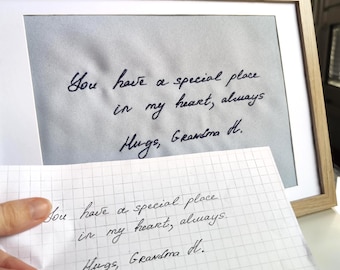 You have a special place
in my heart, always
Hugs, Grandma H.
You have a special place
in my heart, always.
Hugs, Grandma H.